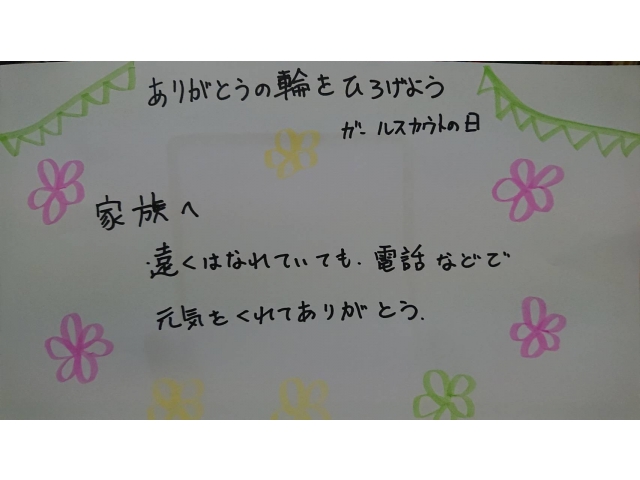 ありがとうの輪をひろげよう
ガールスカウトの日
家族へ
遠くはなれていても、電話などで
元気をくれてありがとう.